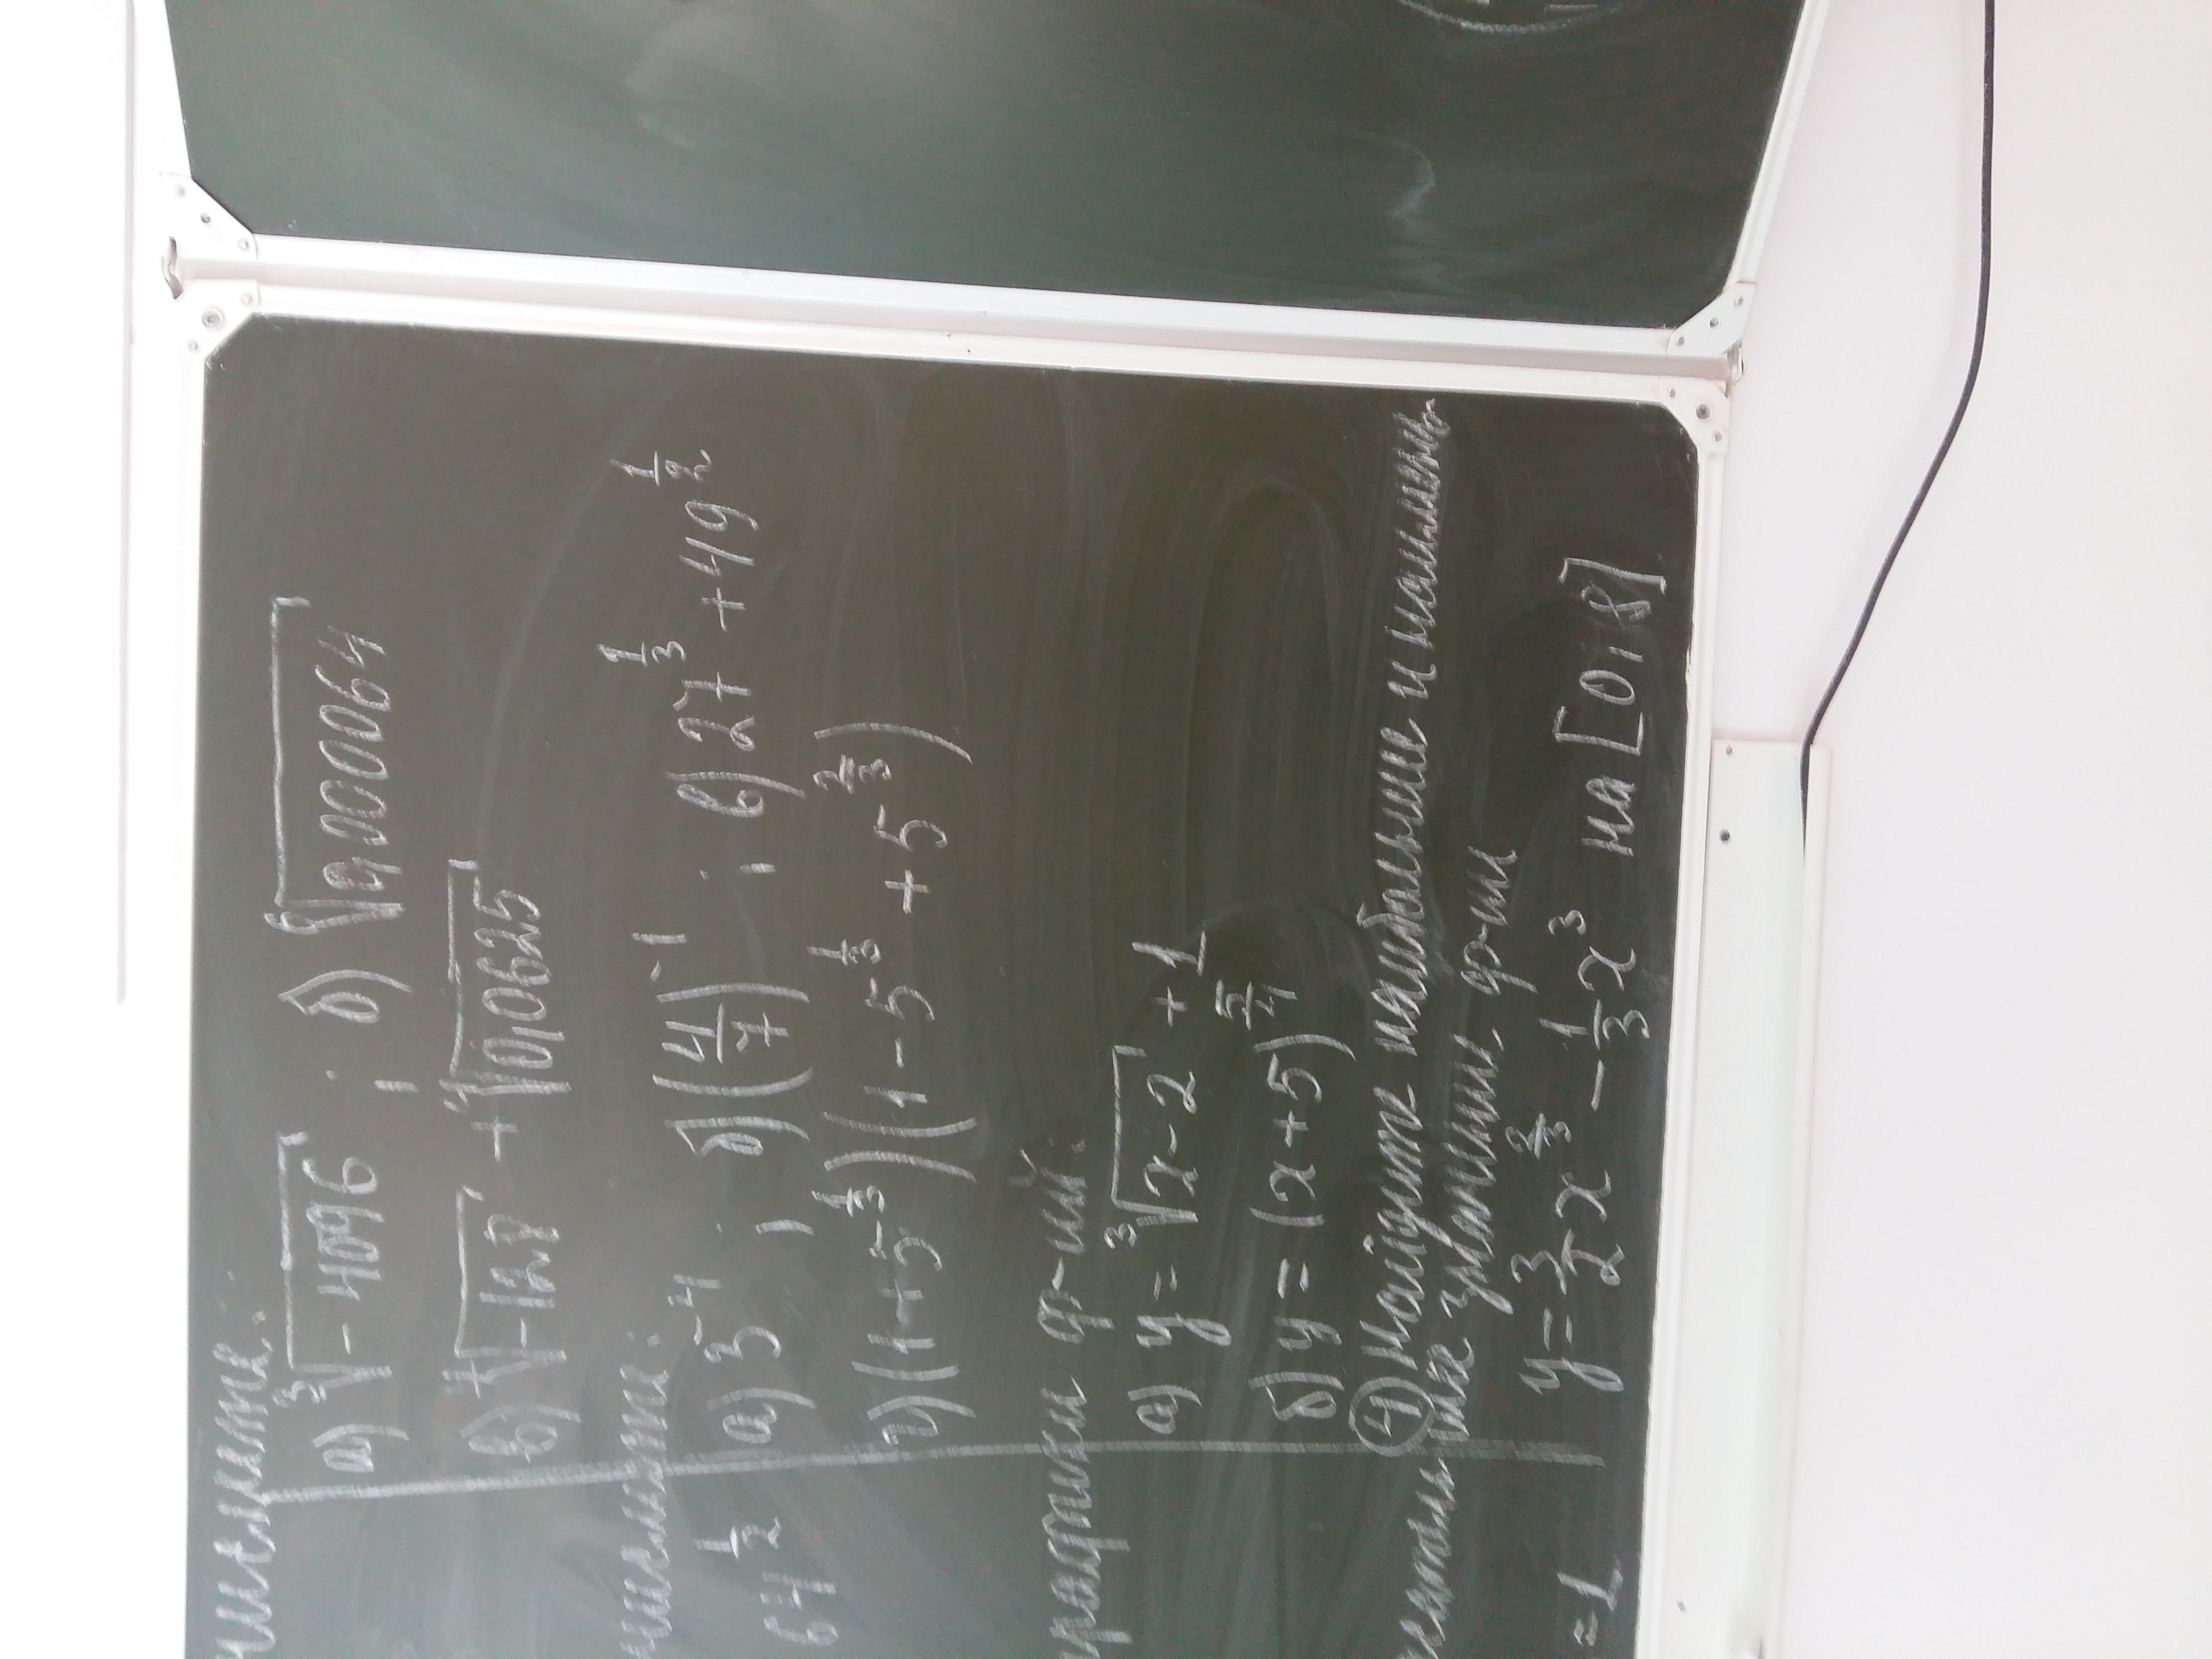 числите:
а) ∛-4096 ; б) ⁶√0,000064
в) ⁷√-128 + ⁴√0,0625
числите:
64^(1/2) а) 3^(-4) ; б) (4/7)^(-1) ; в) 27^(1/3) + 49^(1/2)
г) (1+5^(1/3))(1-5^(1/3)+5^(2/3))
графики ф-ий:
а) y = ∛x-2 + 1
б) y = (x+5)^(5/4)
④ найдите наибольшие и наимень
шие значении ф-ии
=1 y = 3/2 x^(2/3) - 1/3 x³ на [0;8]